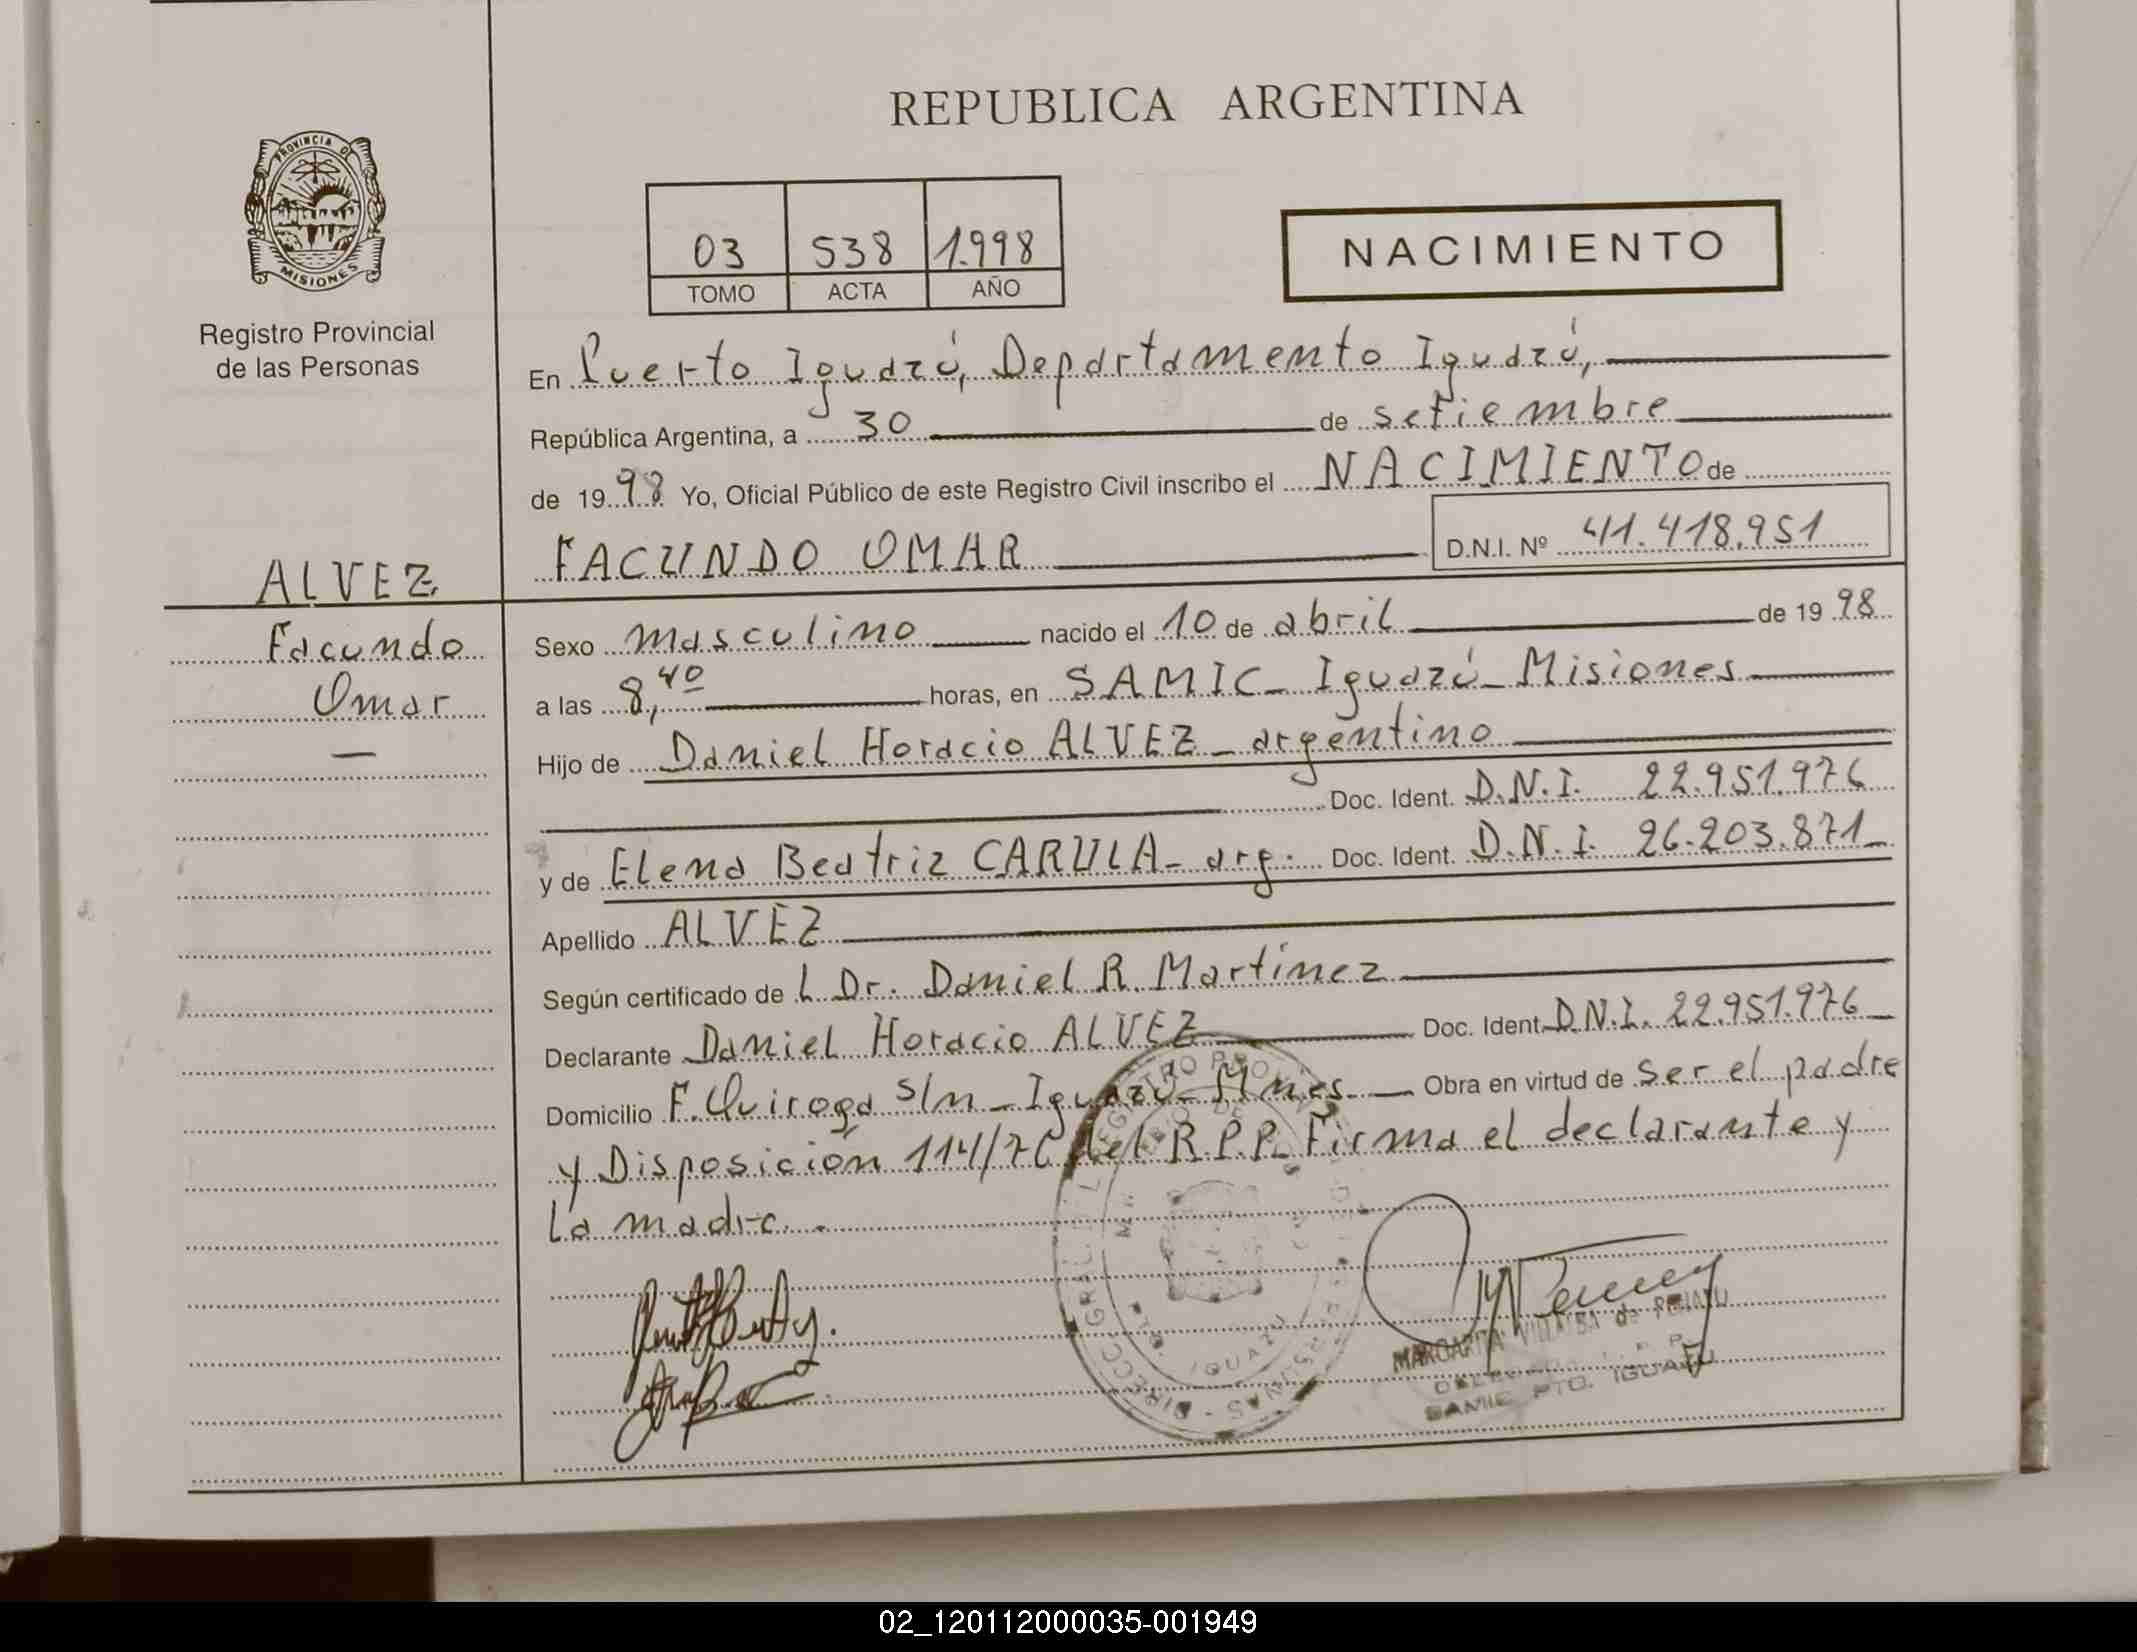 REPUBLICA ARGENTINA
PROVINCIA DE
MISIONES
Registro Provincial
de las Personas
03 538 1.998
TOMO ACTA AÑO
NACIMIENTO
En Puerto Iguazú, Departamento Iguazú,
República Argentina, a 30 de setiembre
de 1998 Yo, Oficial Público de este Registro Civil inscribo el NACIMIENTO de
FACUNDO OMAR D.N.I. Nº 41.418.951
ALVEZ
Facundo
Omar
Sexo masculino nacido el 10 de abril de 1998
a las 8,40 horas, en SAMIC - Iguazú - Misiones
Hijo de Daniel Horacio ALVEZ - argentino
Doc. Ident. D.N.I. 22.951.976
y de Elena Beatriz CARULA - arg. Doc. Ident. D.N.I. 26.203.871
Apellido ALVEZ
Según certificado de L Dr. Daniel R. Martínez
Declarante Daniel Horacio ALVEZ Doc. Ident. D.N.I. 22.951.976
Domicilio F. Quiroga s/n - Iguazú - Mnes. Obra en virtud de ser el padre
y Disposición 114/76 del R.P.P. Firma el declarante y
La madre.
MARGARITA VILLALBA de
SAMIC PTO. IGUAZU
02_120112000035-001949